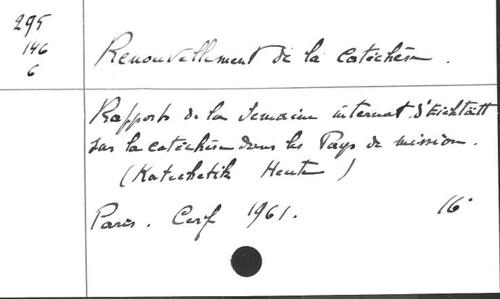 295
146
6
Renouvellement de la Catéchèse.
Rapports de la Semaine internat. d'Eichstätt
sur la catéchèse dans les Pays de mission.
(Katechetik Heute)
Paris. Cerf 1961. 16°